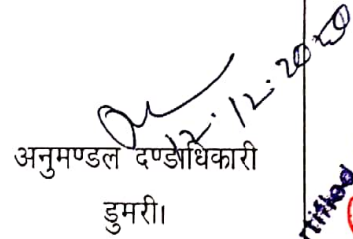 12.12.2020
अनुमण्डल दण्डाधिकारी
डुमरी।